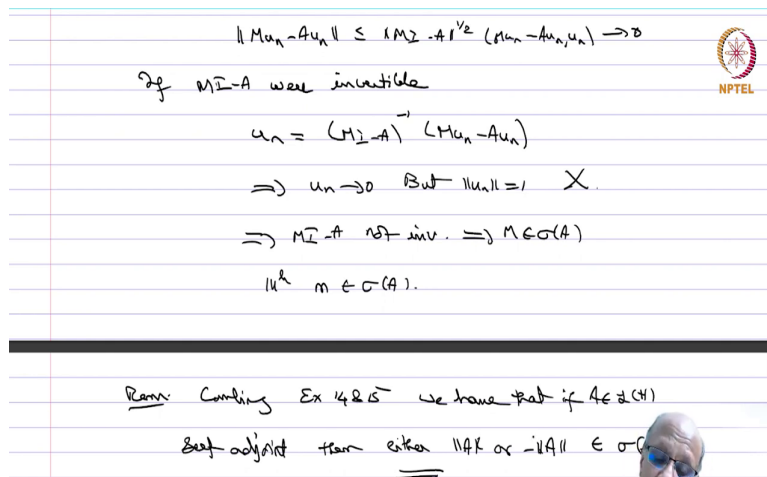 || Mun - Aun || ≤ ||MI - A||^1/2 (Mun - Aun, un) → 0
NPTEL
If MI-A were invertible
un = (MI-A)^-1 (Mun - Aun)
⇒ un → 0 But ||un|| = 1 X.
⇒ MI-A not inv. ⇒ M ∈ σ(A)
|||ly m ∈ σ(A).
Rem. Combing Ex 14 & 15 we have that if A ∈ L(H)
Self adjoint then either ||A|| or -||A|| ∈ σ(